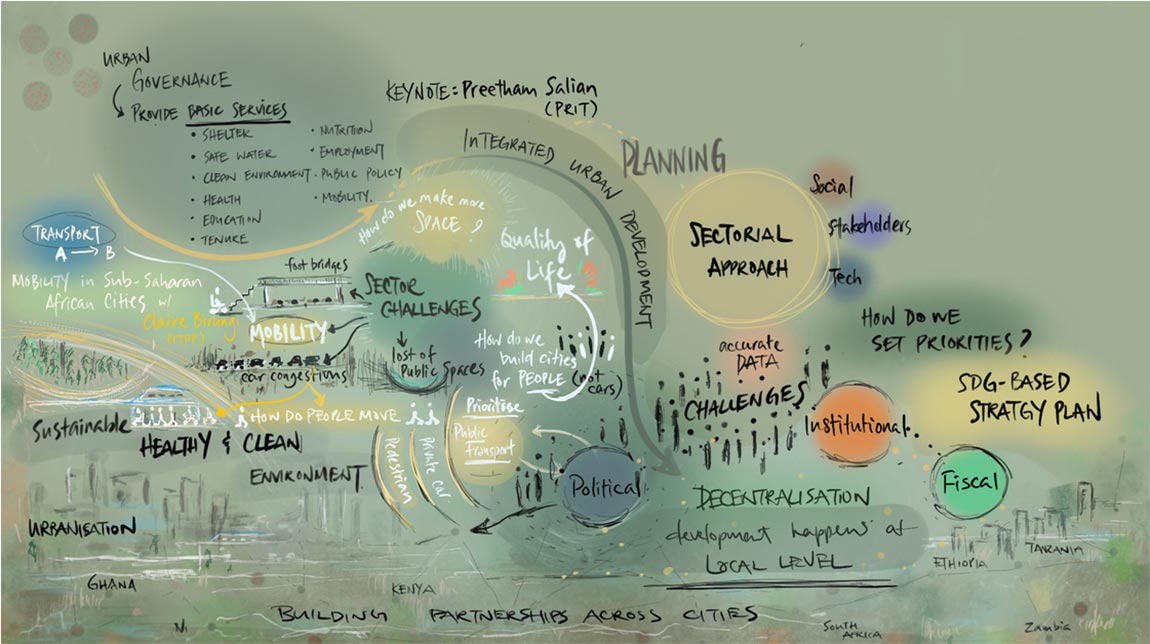 URBAN
GOVERNANCE
PROVIDE BASIC SERVICES
• SHELTER
• SAFE WATER
• CLEAN ENVIRONMENT
• HEALTH
• EDUCATION
• TENURE
• NUTRITION
• EMPLOYMENT
• PUBLIC POLICY
• MOBILITY.
KEYNOTE: Preetham Salian
(PRIT)
INTEGRATED URBAN DEVELOPMENT
PLANNING
SECTORIAL
APPROACH
Social
Stakehdders
Tech
How do we make more
SPACE?
Quality of
Life
TRANSPORT
A → B
MOBILITY in Sub-Saharan
African Cities w/
MOBILITY
foot bridges
SECTOR
CHALLENGES
car congestions
lost of
Public Spaces
How do we
build cities
for PEOPLE (not
cars)
accurate
DATA
CHALLENGES
Institutional
HOW DO WE
SET PRIORITIES?
SDG-BASED
STRATGY PLAN
Fiscal
Sustainable
HEALTHY & CLEAN
ENVIRONMENT
HOW DO PEOPLE MOVE
Pedestrian
Private car
Prioritise
Public
transport
Political
DECENTRALISATION
development happens at
LOCAL LEVEL
URBANISATION
GHANA
KENYA
ETHIOPIA
BUILDING PARTNERSHIPS ACROSS CITIES
SOUTH
AFRICA
Zambia